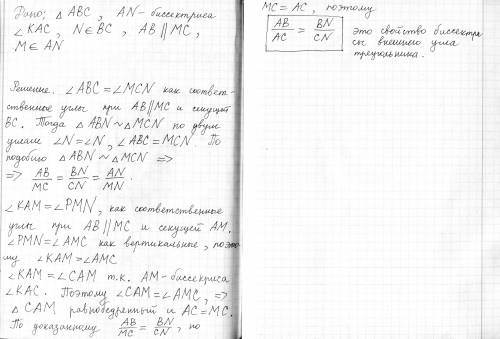 Дано: △ABC, AN-биссектриса
∠KAC, N∈BC, AB∥MC,
M∈AN
Решение. ∠ABC=∠MCN как соответ-
ственные углы при AB∥MC и секущей
BC. Тогда △ABN~△MCN по двум
углам ∠N=∠N, ∠ABC=MCN. По
подобию △ABN~△MCN =>
=> AB/MC = BN/CN = AN/MN.
∠KAM=∠PMN, как соответственные
углы при AB∥MC и секущей AM.
∠PMN=∠AMC как вертикальные, поэто
му ∠KAM=∠AMC
∠KAM=∠CAM т.к. AM-биссекриса
∠KAC. Поэтому ∠CAM=∠AMC, =>
△CAM равнобедренный и AC=MC.
По доказанному AB/MC = BN/CN, но
MC=AC, поэтому
AB/AC = BN/CN это свойство биссектри
сы внешнего угла
треугольника.